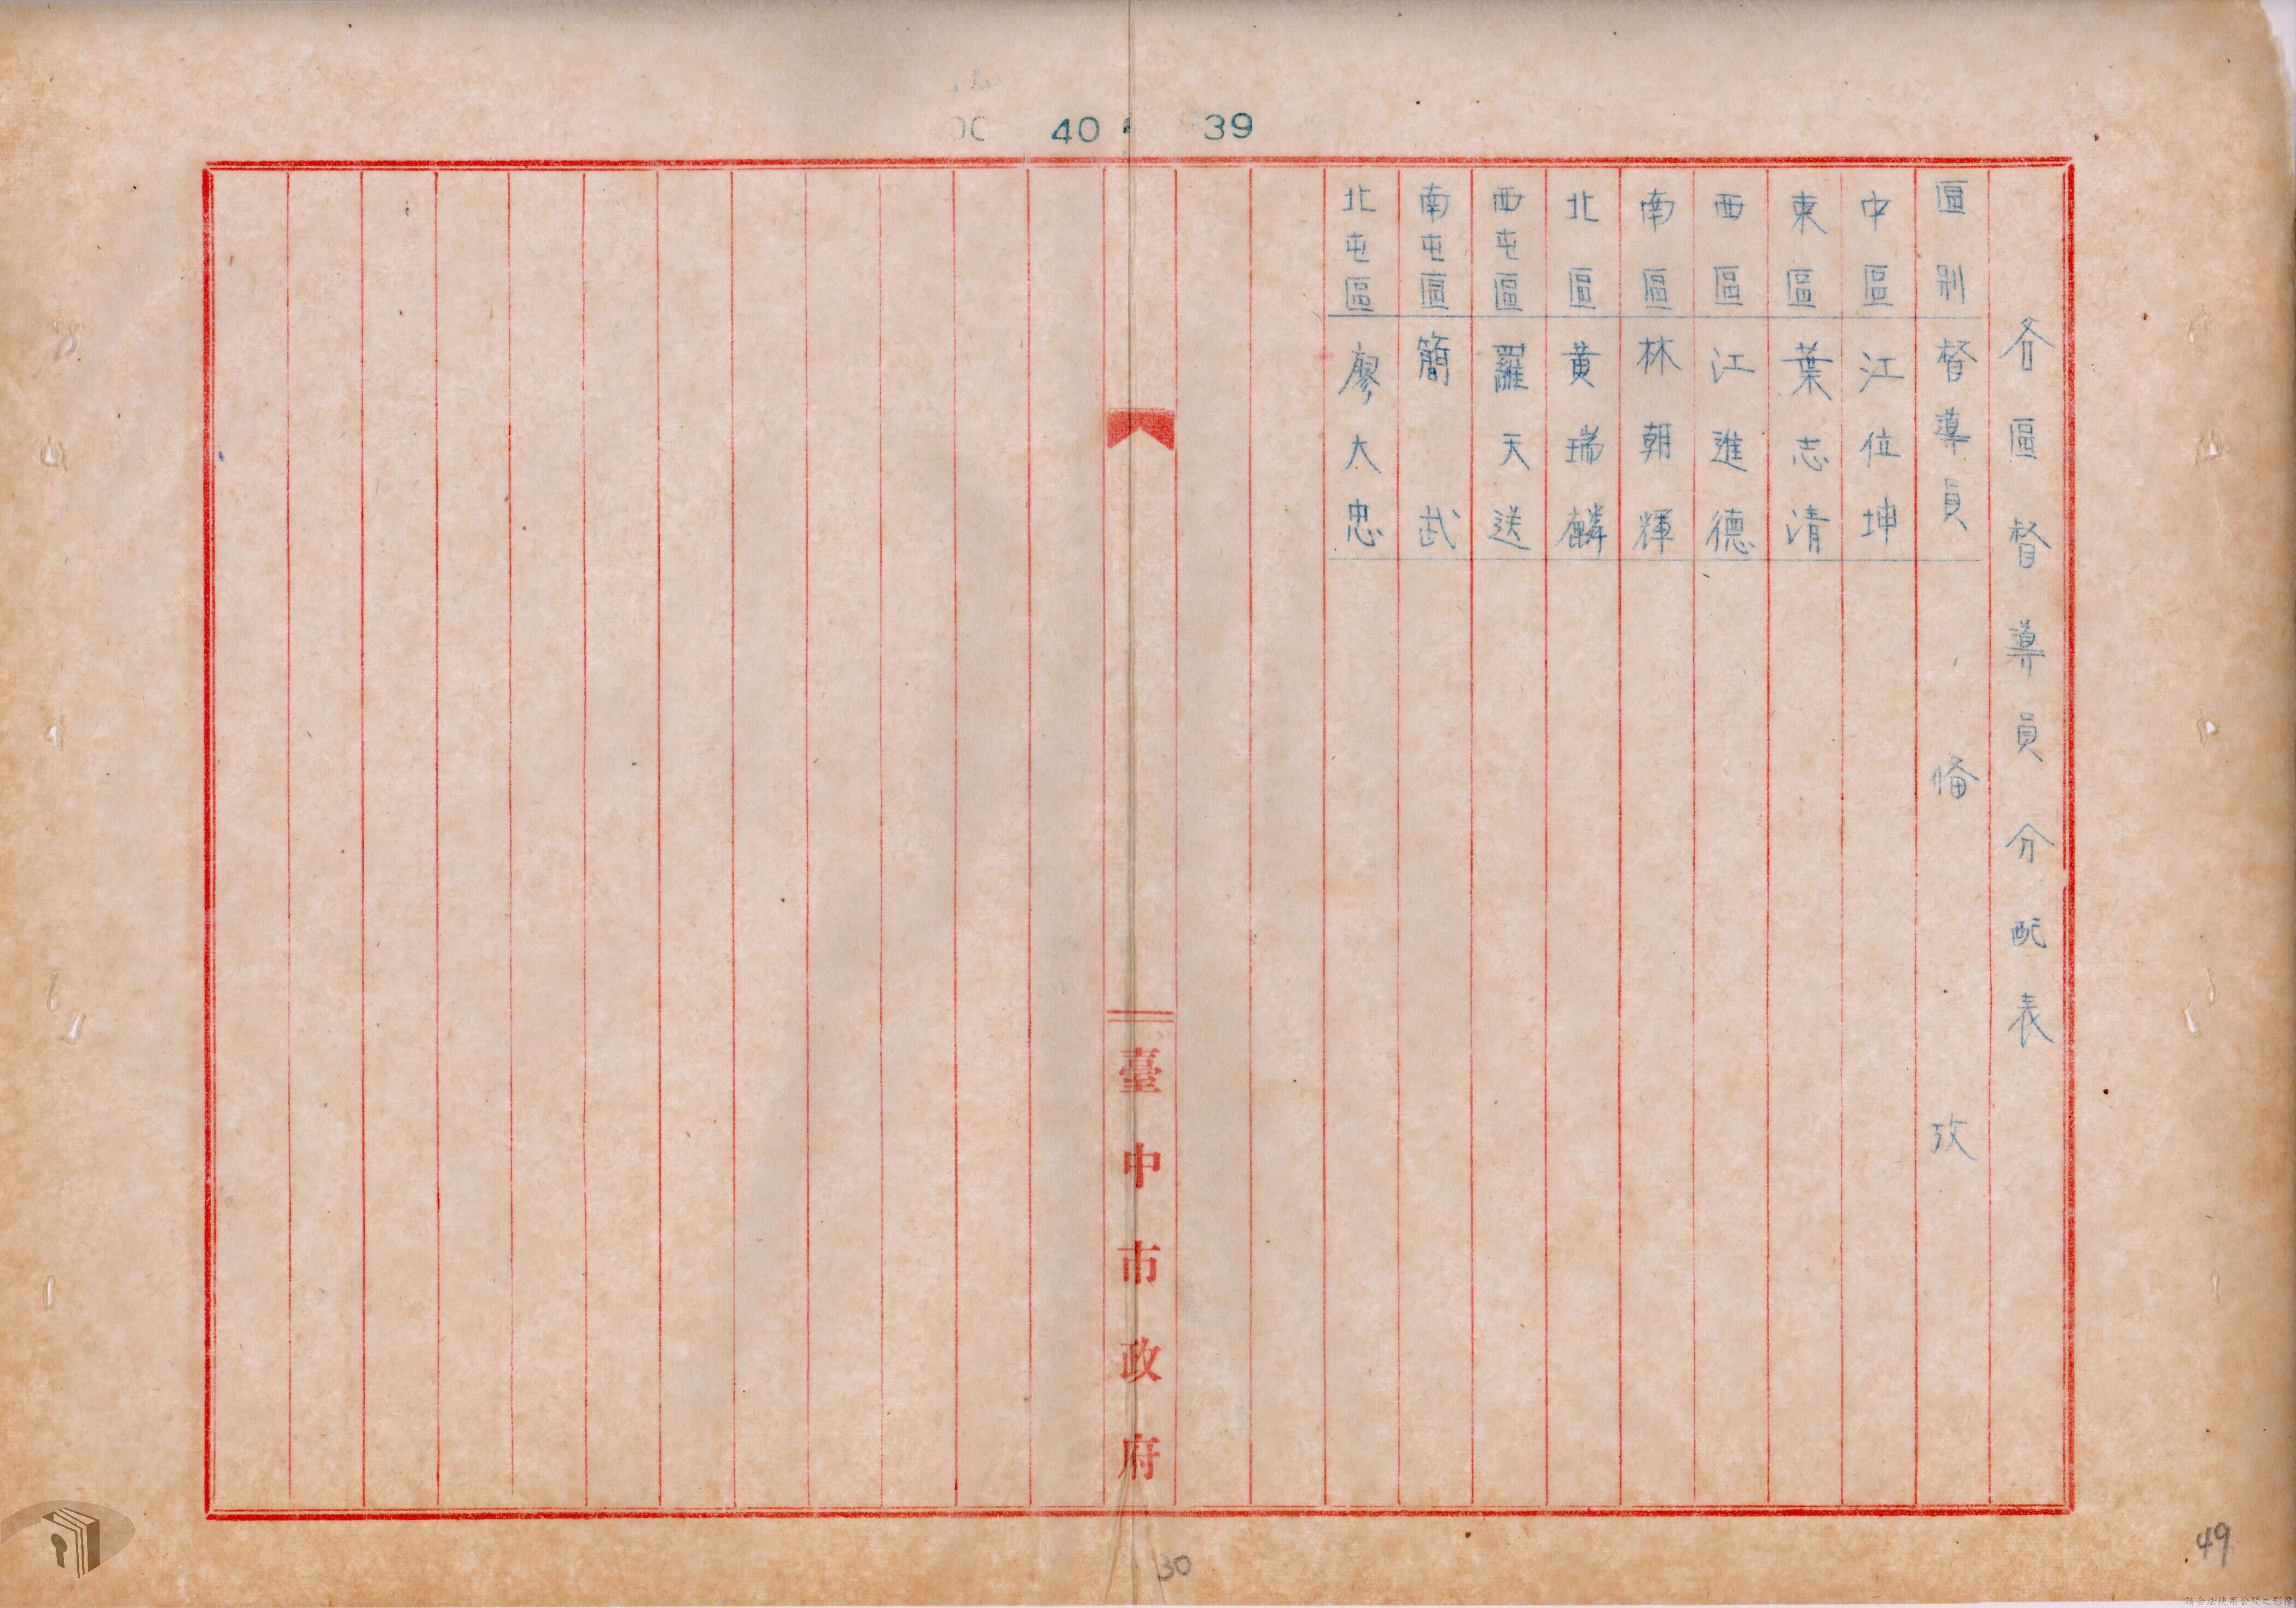 40 39
各區督導員分配表
區別 督導員 備攷
中區 江位坤
東區 葉志清
西區 江進德
南區 林朝輝
北區 黃瑞麟
西屯區 羅天送
南屯區 簡武
北屯區 廖大忠
臺中市政府
30
49
請合法使用公開之影像